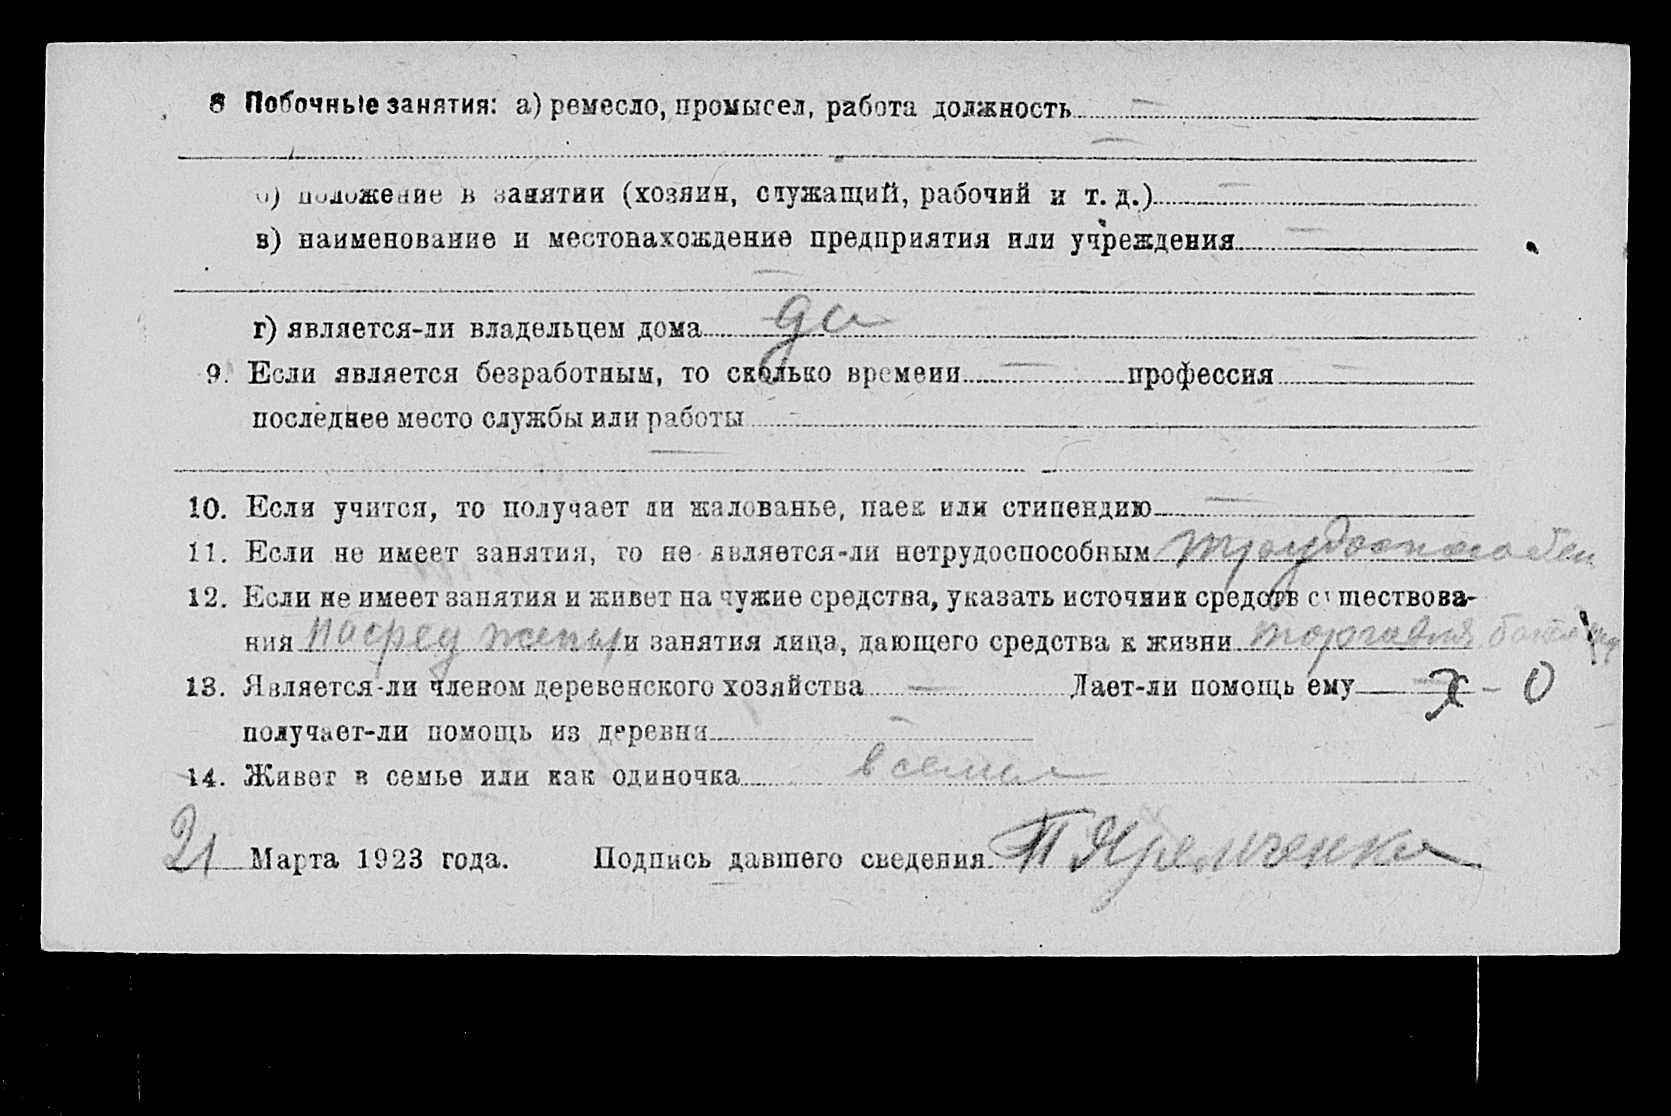 8 Побочные занятия: а) ремесло, промысел, работа должность —
—
б) положение в занятии (хозяин, служащий, рабочий и т. д.) —
в) наименование и местонахождение предприятия или учреждения —
—
г) является-ли владельцем дома да
9. Если является безработным, то сколько времени — профессия —
последнее место службы или работы —
—
10. Если учится, то получает ли жалованье, паек или стипендию —
11. Если не имеет занятия, то не является-ли нетрудоспособным трудоспособен
12. Если не имеет занятия и живет на чужие средства, указать источник средств существова-
ния на сред жены и занятия лица, дающего средства к жизни торговля
13. Является-ли членом деревенского хозяйства — Дает-ли помощь ему — х - 0
получает-ли помощь из деревни —
14. Живет в семье или как одиночка в семье
21 Марта 1923 года. Подпись давшего сведения П Яременко